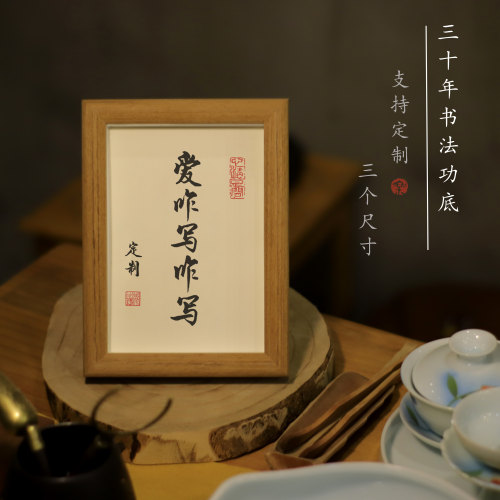 三十年书法功底
支持定制
三个尺寸
爱咋写咋写
定制